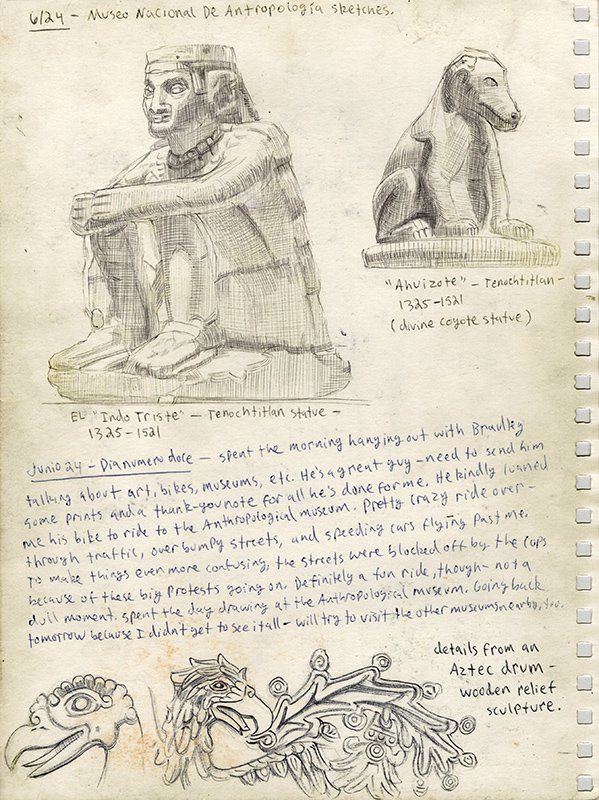 6/24 - Museo Nacional De Antropología sketches.
"Ahuizote" - Tenochtitlan -
1325-1521
(divine coyote statue)
EL "Indo Triste" - Tenochtitlan statue -
1325-1521
Junio 24 - Dia numero doce - spent the morning hanging out with Bradley
talking about art, bikes, museums, etc. He's a great guy - need to send him
some prints and a thank-you note for all he's done for me. He kindly loaned
me his bike to ride to the Anthropological museum. Pretty crazy ride over -
through traffic, over bumpy streets, and speeding cars flying past me.
To make things even more confusing, the streets were blocked off by the cops
because of these big protests going on. Definitely a fun ride, though - not a
dull moment. Spent the day drawing at the Anthropological museum. Going back
tomorrow because I didn't get to see it all - will try to visit the other museums nearby, too.
details from an
Aztec drum -
wooden relief
sculpture.